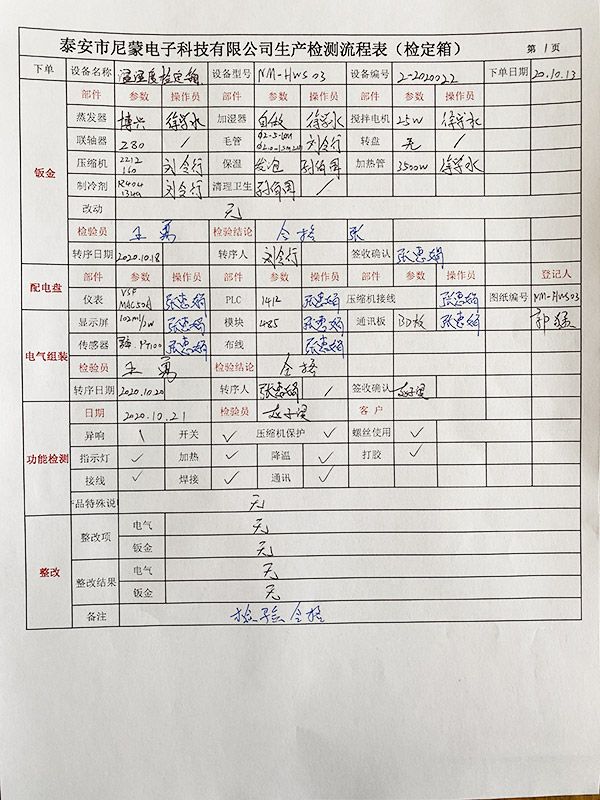 泰安市尼蒙电子科技有限公司生产检测流程表（检定箱） 第1页
下单 设备名称 温湿度检定箱 设备型号 NM-HWS03 设备编号 2-2020022 下单日期 20.10.13
部件 参数 操作员 部件 参数 操作员 部件 参数 操作员
蒸发器 博兴 加湿器 自做 搅拌电机 25W
联轴器 Z80 / 毛管 刘令行 转盘 无 /
钣金 压缩机 2212 160 刘令行 保温 发泡 加热管 3500W
制冷剂 R404 134a 刘令行 清理卫生 /
改动 无
检验员 王勇 检验结论 合格 张
转序日期 2020.10.18 转序人 刘令行 签收确认 张惠娟
配电盘 部件 参数 操作员 部件 参数 操作员 部件 参数 操作员 登记人
仪表 张惠娟 PLC 1412 张惠娟 压缩机接线 张惠娟 图纸编号 NM-HWS03
显示屏 张惠娟 模块 485 张惠娟 通讯板 张惠娟
电气组装 传感器 PT100 张惠娟 布线 张惠娟
检验员 王勇 检验结论 合格
转序日期 2020.10.20 转序人 张惠娟 / 签收确认
日期 2020.10.21 检验员 客户
异响 \ 开关 ✓ 压缩机保护 ✓ 螺丝使用 ✓
功能检测 指示灯 ✓ 加热 ✓ 降温 ✓ 打胶 ✓
接线 ✓ 焊接 ✓ 通讯 ✓
产品特殊说 无
整改 整改项 电气 无
钣金 无
整改结果 电气 无
钣金 无
备注 检验合格